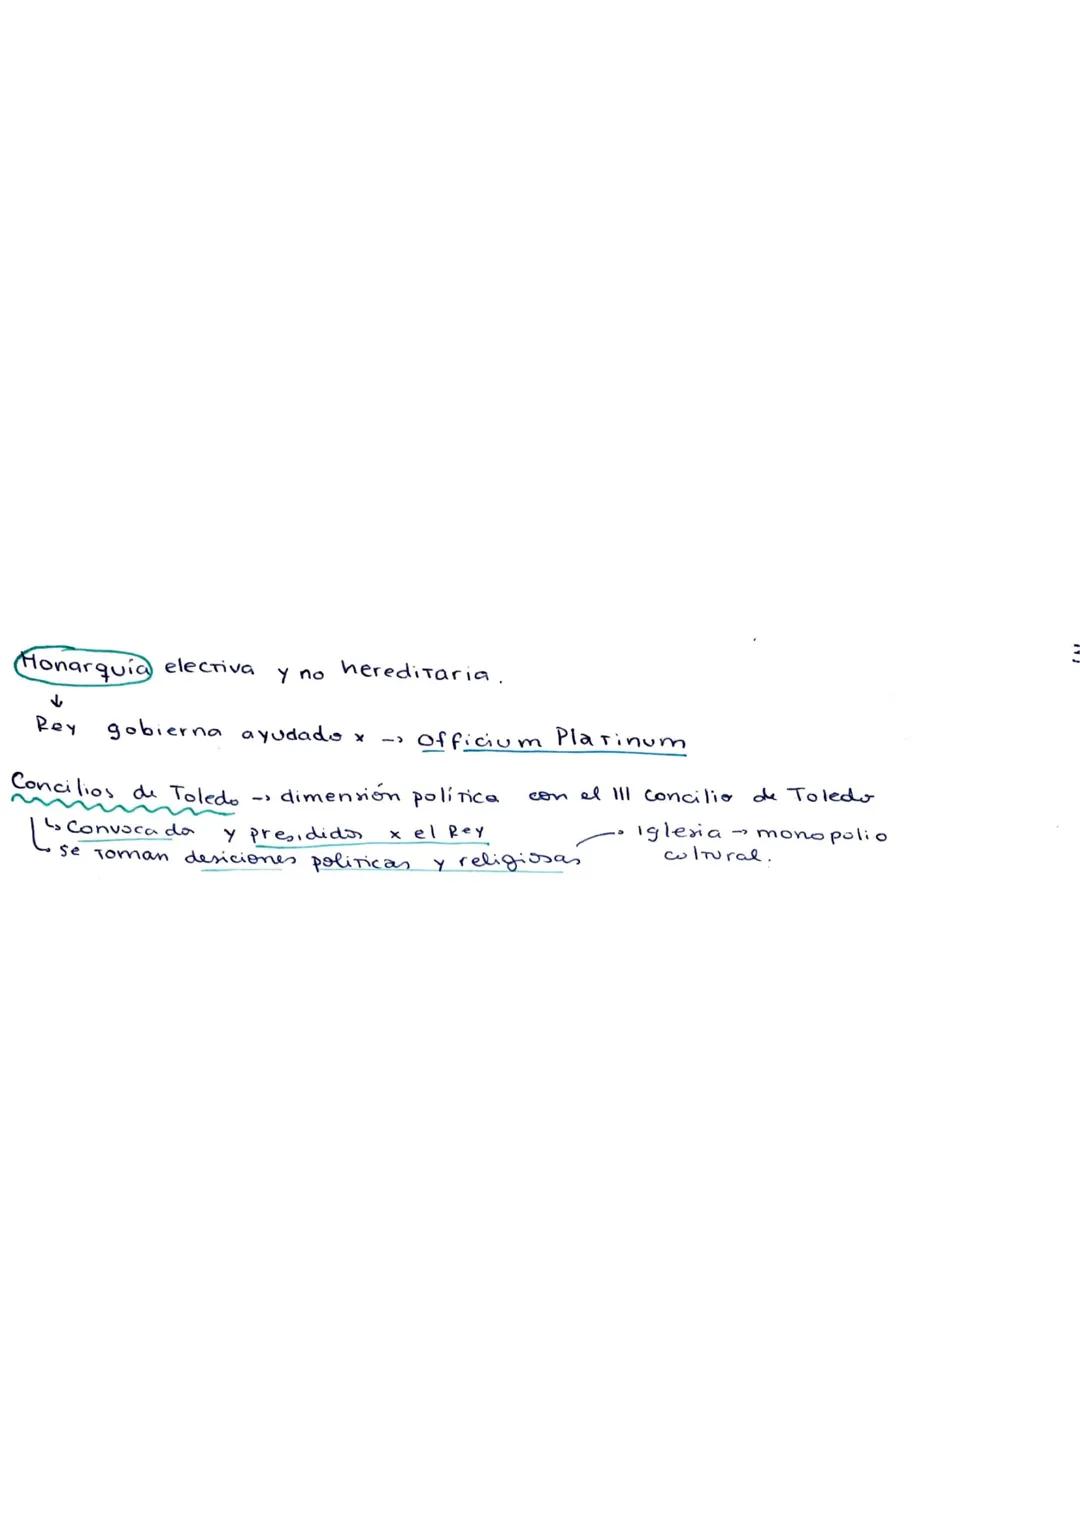 Monarquía electiva y no hereditaria.
↓
Rey gobierna ayudado x → Officium Platinum
Concilios de Toledo → dimensión política con el III concilio de Toledo
↳ Convocados y presididos x el Rey
↳ se toman desiciones politicas y religiosas → Iglesia → monopolio
cultural.